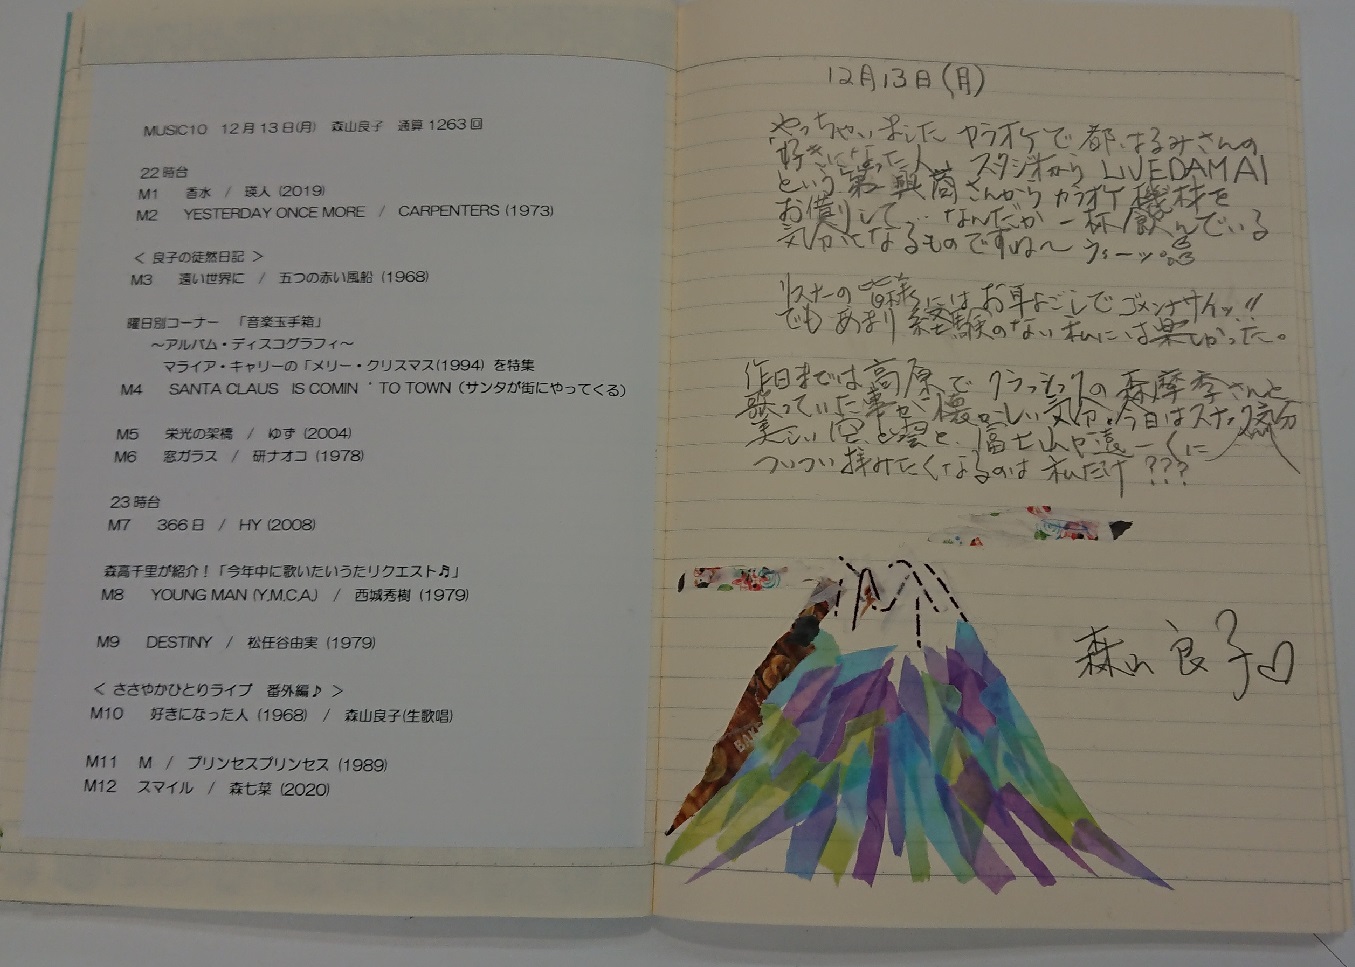 MUSIC10　12月13日(月)　森山良子　通算1263回
22時台
M1　香水　/　瑛人 (2019)
M2　YESTERDAY ONCE MORE　/　CARPENTERS (1973)
＜ 良子の徒然日記 ＞
M3　遠い世界に　/　五つの赤い風船 (1968)
曜日別コーナー　「音楽玉手箱」
～アルバム・ディスコグラフィ～
マライア・キャリーの「メリー・クリスマス(1994) を特集
M4　SANTA CLAUS　IS COMIN＇TO TOWN（サンタが街にやってくる）
M5　栄光の架橋　/　ゆず (2004)
M6　窓ガラス　/　研ナオコ (1978)
23時台
M7　366日　/　HY (2008)
森高千里が紹介！「今年中に歌いたいうたリクエスト♬」
M8　YOUNG MAN (Y.M.C.A.)　/　西城秀樹 (1979)
M9　DESTINY　/　松任谷由実 (1979)
＜ ささやかひとりライブ　番外編♪ ＞
M10　好きになった人 (1968)　/　森山良子(生歌唱)
M11　M　/　プリンセスプリンセス (1989)
M12　スマイル　/　森七菜 (2020)
12月13日(月)
やっちゃいました カラオケで 都はるみさんの
「好きになった人」 スタジオから LIVEDAM AI
という 第一興商さんから カラオケ機材を
お借りして… なんだか 一杯飲んでいる
気分になるものですね〜 うぃーッ。
リスナーの皆様にはお耳よごしでゴメンナサイッ!!
でも あまり 経験のない私には楽しかった。
昨日までは高原で クラシックの 森摩季さんと
歌っていた事が 懐かしい気分。今日はスナック気分
美しい空と雲と、富士山が遠ーくに
ついつい拝みたくなるのは 私だけ ???
森山良子♡
BAK